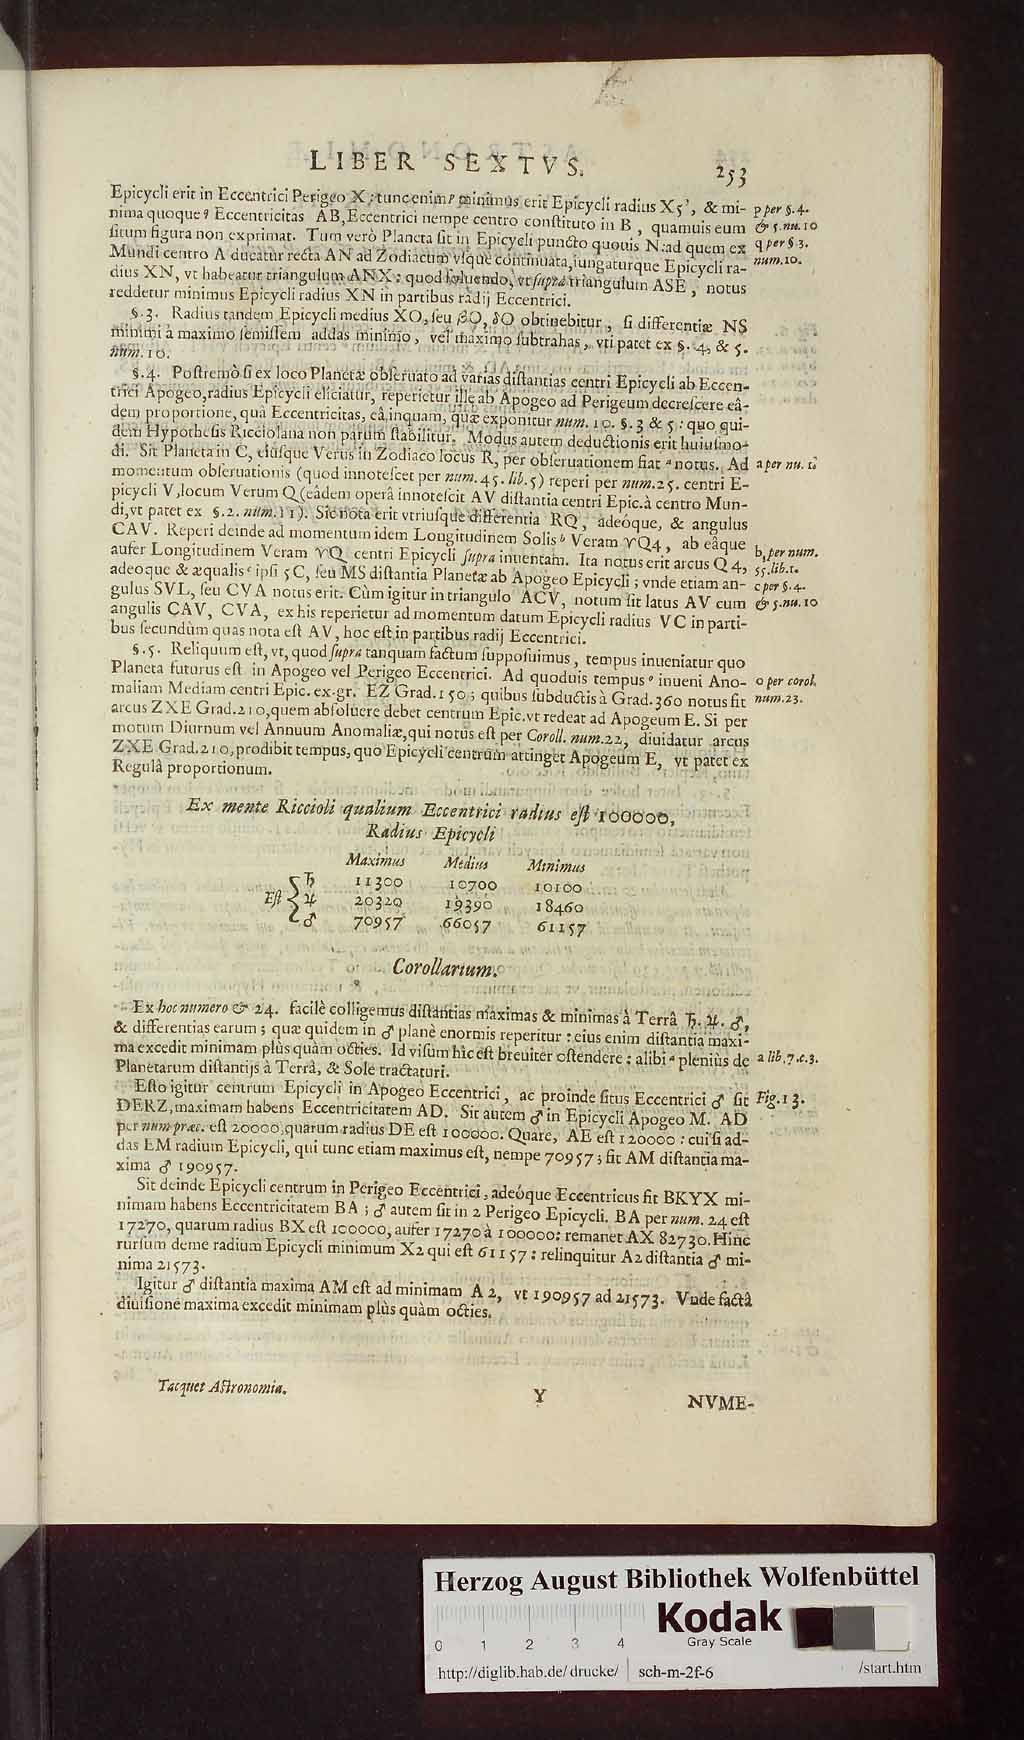 LIBER SEXTVS. 253
Epicycli erit in Eccentrici Perigeo X; tunc enim p minimus erit Epicycli radius X5', & mi- p per §.4.
nima quoque q Eccentricitas AB, Eccentrici nempe centro conſtituto in B , quamuis eum & 5.nu.10
ſitum figura non exprimat. Tum verò Planeta ſit in Epicycli puncto quouis N:ad quem ex q per §.3.
Mundi centro A ducatur recta AN ad Zodiacum vſque continuata, iungaturque Epicycli ra- num.10.
dius XN, vt habeatur triangulum ANX: quod ſoluendo, vt ſupra triangulum ASE , notus
reddetur minimus Epicycli radius XN in partibus radij Eccentrici.
§.3. Radius tandem Epicycli medius XO, ſeu βO, δO obtinebitur , ſi differentiæ NS
minimi à maximo ſemiſſem addas minimo, vel maximo ſubtrahas, vti patet ex §. 4, & 5.
num. 10.
§.4. Poſtremò ſi ex loco Planetæ obſeruato ad varias diſtantias centri Epicycli ab Eccen-
trici Apogeo, radius Epicycli eliciatur, reperietur ille ab Apogeo ad Perigeum decreſcere eâ-
dem proportione, quâ Eccentricitas, eâ inquam, quæ exponitur num. 10. §. 3 & 5 : quo qui-
dem Hypotheſis Riccioliana non parùm ſtabilitur. Modus autem deductionis erit huiuſmo-
di. Sit Planeta in C, eiuſque Verus in Zodiaco locus R, per obſeruationem fiat a notus. Ad a per nu. 1.
momentum obſeruationis (quod innoteſcet per num.45. lib.5) reperi per num.25. centri E-
picycli V, locum Verum Q (eâdem operâ innoteſcit AV diſtantia centri Epic. à centro Mun-
di, vt patet ex §.2. num.11). Sic nota erit vtriuſque differentia RQ, adeóque, & angulus
CAV. Reperi deinde ad momentum idem Longitudinem Solis b Veram ♈Q4, ab eâque b per num.
aufer Longitudinem Veram ♈Q centri Epicycli ſupra inuentam. Ita notus erit arcus Q4, 55.lib.1.
adeoque & æqualis c ipſi 5C, ſeu MS diſtantia Planetæ ab Apogeo Epicycli ; vnde etiam an- c per §.4.
gulus SVL, ſeu CVA notus erit. Cùm igitur in triangulo ACV, notum ſit latus AV cum & 5.nu.10
angulis CAV, CVA, ex his reperietur ad momentum datum Epicycli radius VC in parti-
bus ſecundùm quas nota eſt AV, hoc eſt in partibus radij Eccentrici.
§.5. Reliquum eſt, vt, quod ſupra tanquam factum ſuppoſuimus, tempus inueniatur quo
Planeta futurus eſt in Apogeo vel Perigeo Eccentrici. Ad quoduis tempus o inueni Ano- o per corol.
maliam Mediam centri Epic. ex.gr. EZ Grad.150 ; quibus ſubductis à Grad.360 notus fit num.23.
arcus ZXE Grad.210, quem abſoluere debet centrum Epic. vt redeat ad Apogeum E. Si per
motum Diurnum vel Annuum Anomaliæ, qui notus eſt per Coroll. num.22, diuidatur arcus
ZXE Grad.210, prodibit tempus, quo Epicycli centrum attinget Apogeum E, vt patet ex
Regulâ proportionum.
Ex mente Riccioli qualium Eccentrici radius eſt 100000,
Radius Epicycli
Maximus Medius Minimus
♄ 11300 10700 10100
Eſt ♃ 20320 19390 18460
♂ 70957 66057 61157
Corollarium.
Ex hoc numero & 24. facilè colligemus diſtantias maximas & minimas à Terrâ ♄. ♃. ♂,
& differentias earum ; quæ quidem in ♂ planè enormis reperitur : eius enim diſtantia maxi-
ma excedit minimam plùs quàm octies. Id viſum hîc eſt breuiter oſtendere : alibi a pleniùs de a lib.7.c.3.
Planetarum diſtantijs à Terrâ, & Sole tractaturi.
Eſto igitur centrum Epicycli in Apogeo Eccentrici, ac proinde ſitus Eccentrici ♂ ſit Fig.13.
DERZ, maximam habens Eccentricitatem AD. Sit autem ♂ in Epicycli Apogeo M. AD
per num. præc. eſt 20000, quarum radius DE eſt 100000. Quare, AE eſt 120000 : cui ſi ad-
das EM radium Epicycli, qui tunc etiam maximus eſt, nempe 70957 ; fit AM diſtantia ma-
xima ♂ 190957.
Sit deinde Epicycli centrum in Perigeo Eccentrici, adeóque Eccentricus ſit BKYX mi-
nimam habens Eccentricitatem BA ; ♂ autem ſit in 2 Perigeo Epicycli. BA per num. 24 eſt
17270, quarum radius BX eſt 100000, aufer 17270 à 100000: remanet AX 82730. Hinc
rurſum deme radium Epicycli minimum X2 qui eſt 61157 : relinquitur A2 diſtantia ♂ mi-
nima 21573.
Igitur ♂ diſtantia maxima AM eſt ad minimam A2, vt 190957 ad 21573. Vnde factâ
diuiſione maxima excedit minimam plùs quàm octies.
Tacquet Aſtronomia. Y NVME-
Herzog August Bibliothek Wolfenbüttel
Kodak
Gray Scale
0 1 2 3 4
http://diglib.hab.de/drucke/ sch-m-2f-6 /start.htm